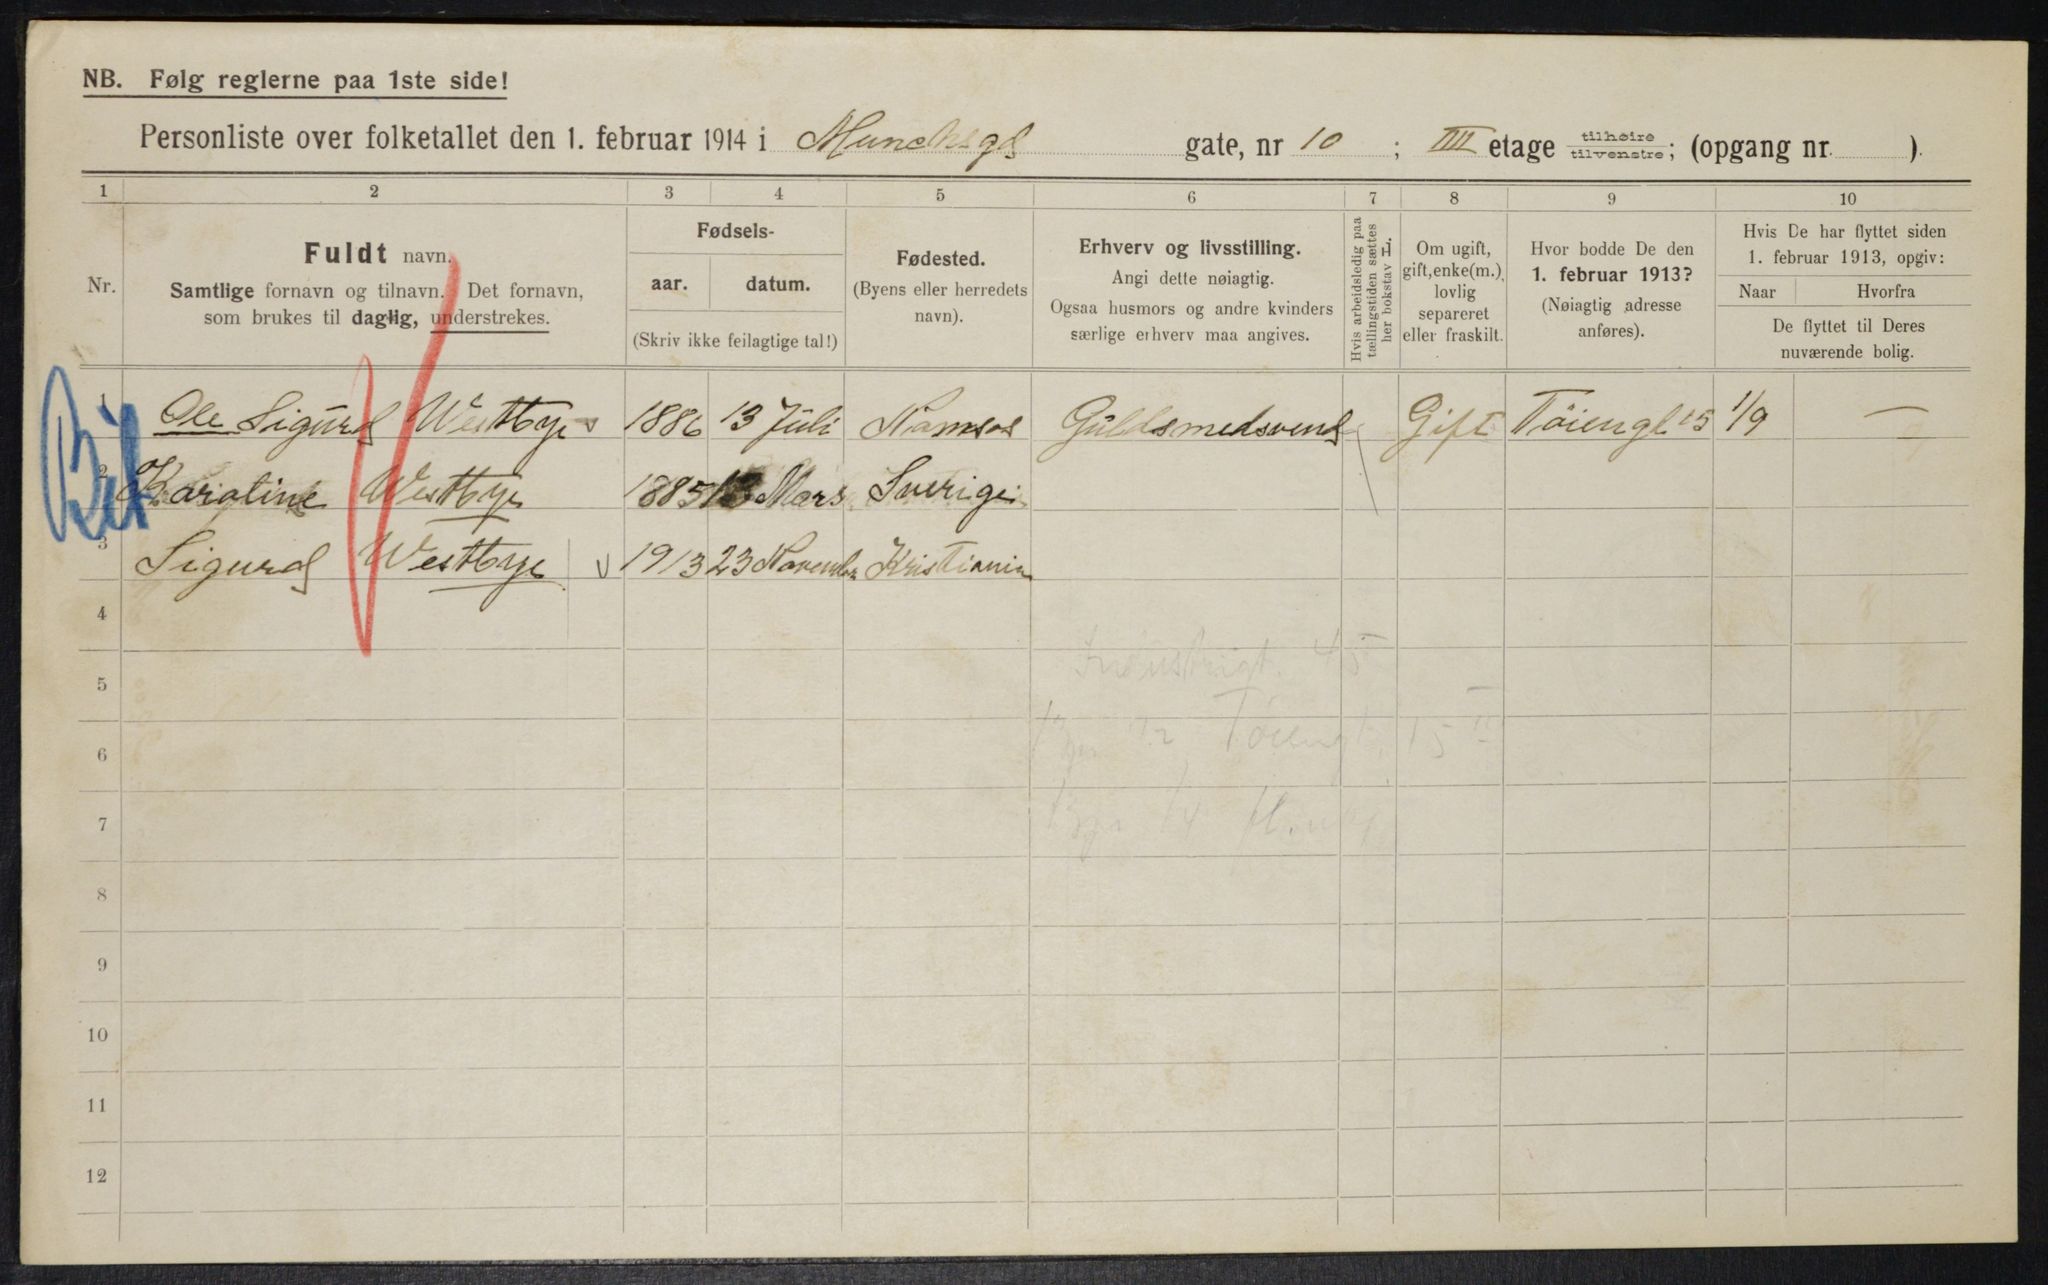 NB. Følg reglerne paa 1ste side!
Personliste over folketallet den 1. februar 1914 i Munchsgd gate, nr 10 ; IIII etage tilhøire tilvenstre; (opgang nr. ).
1 2 3 4 5 6 7 8 9 10
Nr.
Fuldt navn.
Samtlige fornavn og tilnavn. Det fornavn,
som brukes til daglig, understrekes.
Fødsels-
aar. datum.
(Skriv ikke feilagtige tal!)
Fødested.
(Byens eller herredets
navn).
Erhverv og livsstilling.
Angi dette nøiagtig.
Ogsaa husmors og andre kvinders
særlige erhverv maa angives.
Hvis arbeidsledig paa
tællingstiden sættes
her bokstav L.
Om ugift,
gift, enke(m.),
lovlig
separeret
eller fraskilt.
Hvor bodde De den
1. februar 1913?
(Nøiagtig adresse
anføres).
Hvis De har flyttet siden
1. februar 1913, opgiv:
Naar Hvorfra
De flyttet til Deres
nuværende bolig.
1 Ole Sigurd Westbye 1886 13 Juli Namsos Guldsmedsvend Gift Töiengt 15 1/9 —
2 Karoline Westbye 1885 Mars Sverige
3 Sigurd Westbye 1913 23 November Kristiania
4
Industrigt. 45
5
6 Töiengt. 15 II
7
8
9
10
11
12